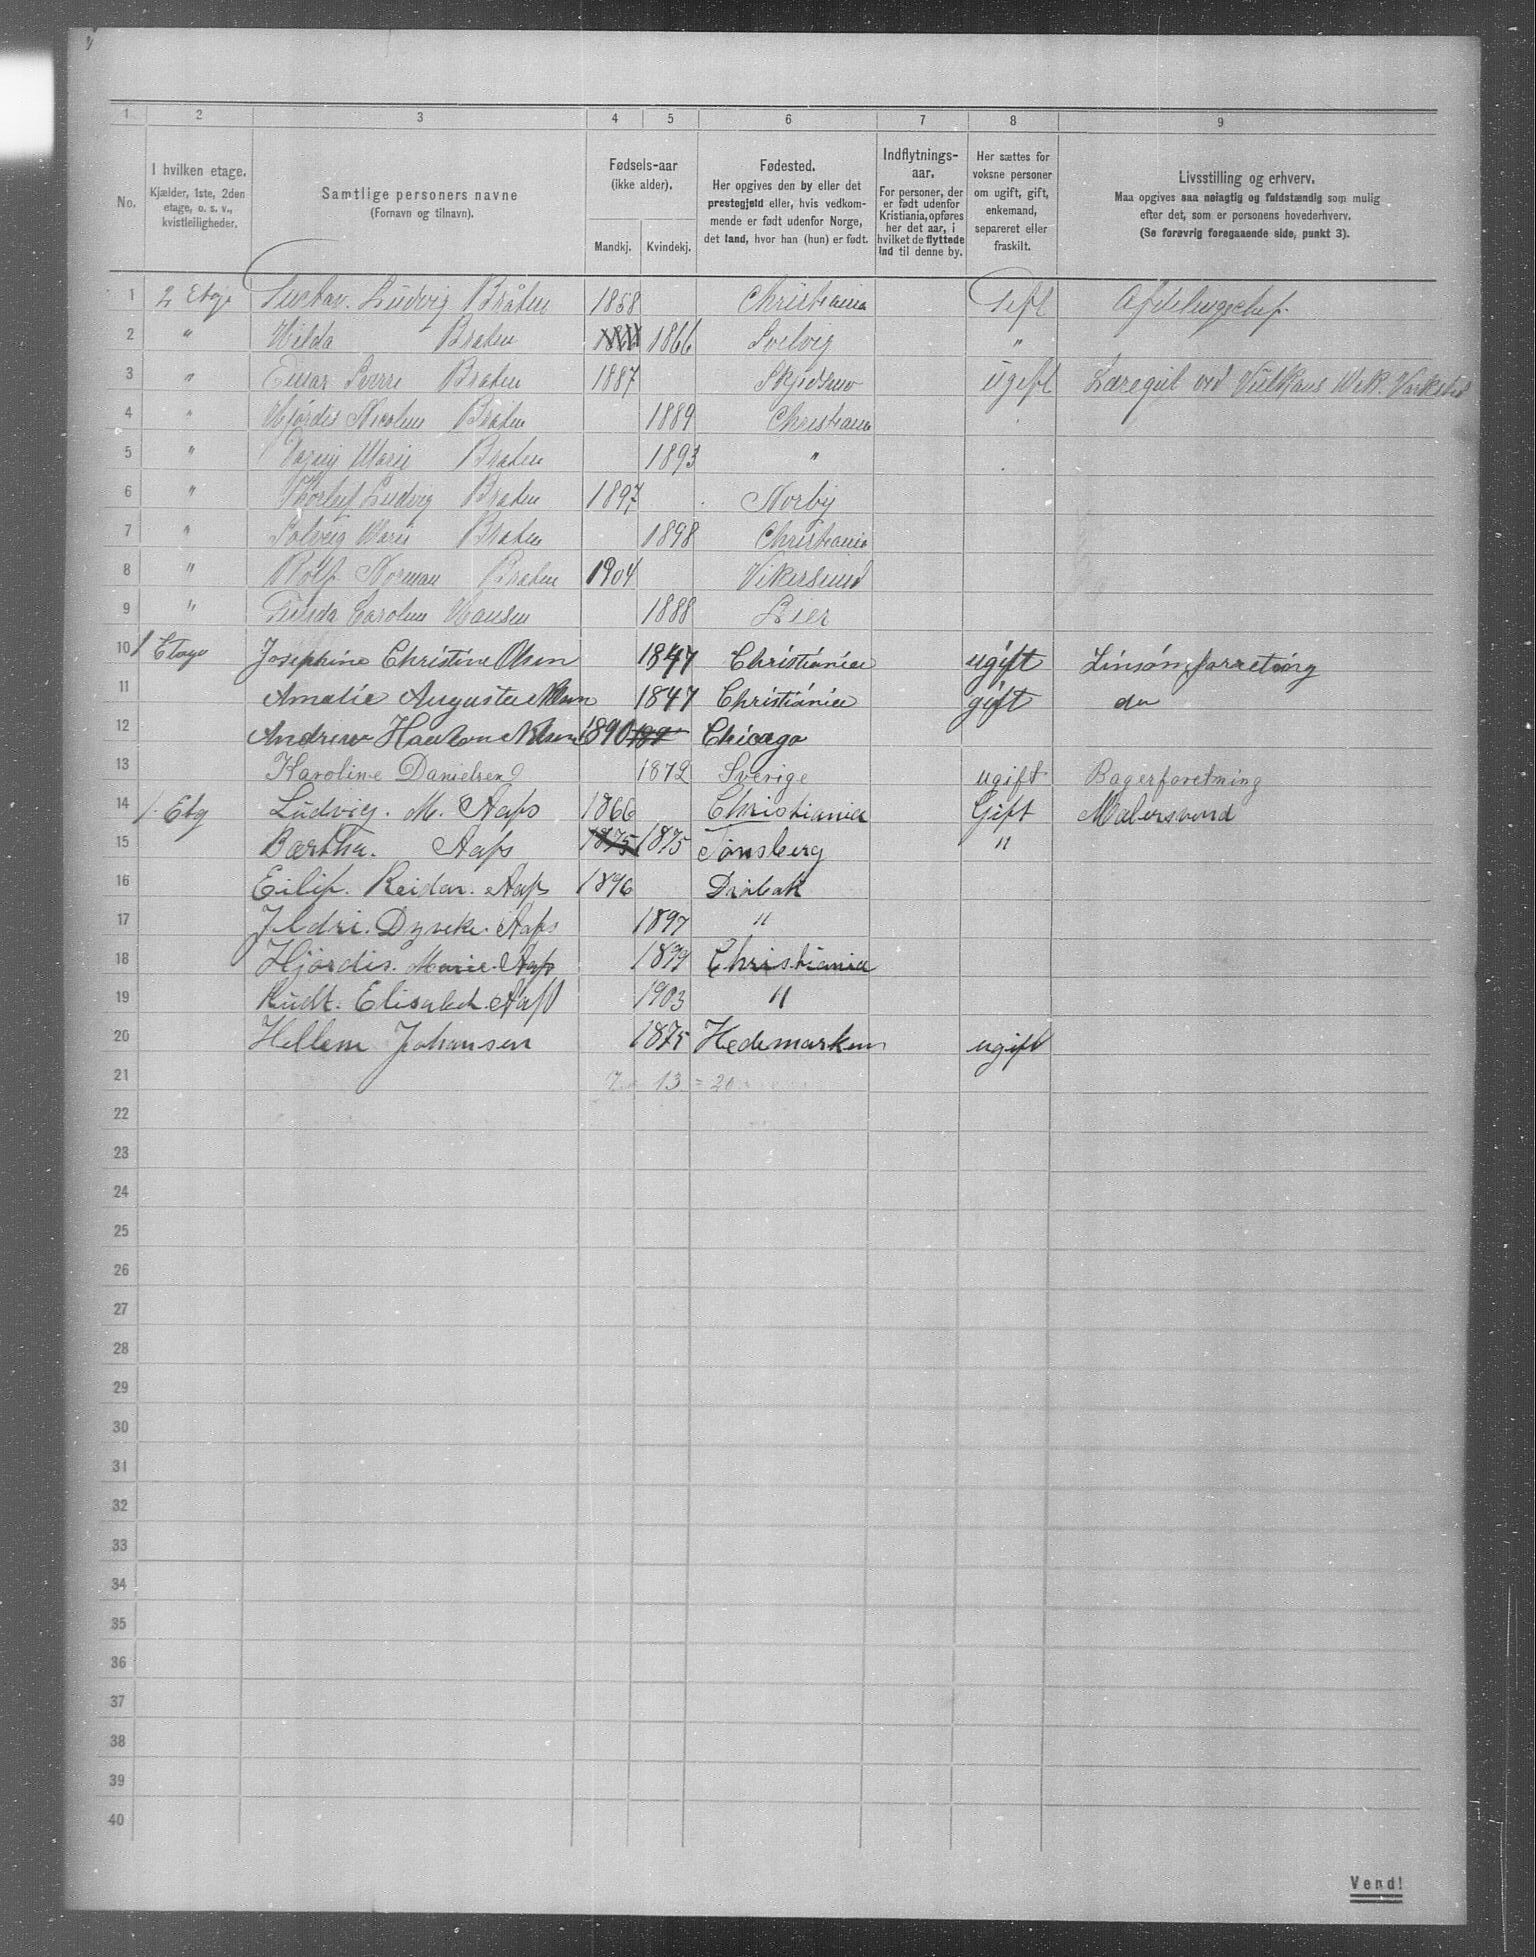 1 2 3 4 5 6 7 8 9
No. I hvilken etage. Kjælder, 1ste, 2den etage, o. s. v., kvistleiligheder. Samtlige personers navne (Fornavn og tilnavn). Fødsels-aar (ikke alder). Mandkj. Kvindekj. Fødested. Her opgives den by eller det prestegjeld eller, hvis vedkommende er født udenfor Norge, det land, hvor han (hun) er født. Indflytnings-aar. For personer, der er født udenfor Kristiania, opføres her det aar, i hvilket de flyttede ind til denne by. Her sættes for voksne personer om ugift, gift, enkemand, separeret eller fraskilt. Livsstilling og erhverv. Maa opgives saa nøiagtig og fuldstændig som mulig efter det, som er personens hovederhverv. (Se forøvrig foregaaende side, punkt 3).
1 2 Etage Gustav. Ludvig Bråten 1858 Christiania Gift Afdelingschef
2 " Hilda Braten 1866 Svelvig "
3 " Einar Sverre Braten 1887 Skjedsmo ugift Læregut ved Vulkans Mek. Verksted
4 " Hjördis Nicoline Braten 1889 Christiania
5 " Dagny Marie Braten 1893 "
6 " Thorleif Ludvig Braten 1897 Norby
7 " Solveig Marie Braten 1898 Christiania
8 " Rolf Norman Braten 1904 Vikersund
9 " Gunda Caroline Hansen 1888 Lier
10 1 Etage Josephine Christine Olsen 1847 Christiania ugift Linsömforretning
11 Amalie Augusta Olsen 1847 Christiania gift do
12 Andrew 1890 Chicago
13 Karoline Danielsen 1872 Sverige ugift Bagerforretning
14 1. Etg Ludvig. M. Aas 1866 Christiania Gift Malersvend
15 Bertha. Aas 1875 1875 Tønsberg "
16 Eilif. Reidar. Aas 1896 Dröbak
17 Jldri. Dyveke. Aas 1897 "
18 Hjördis. Marie. Aas 1899 Christiania
19 Rudt. Elisabet. Aas 1903 "
20 Hellem Johansen 1875 Hedemarken ugift
21 7 13 = 20
22
23
24
25
26
27
28
29
30
31
32
33
34
35
36
37
38
39
40
Vend!